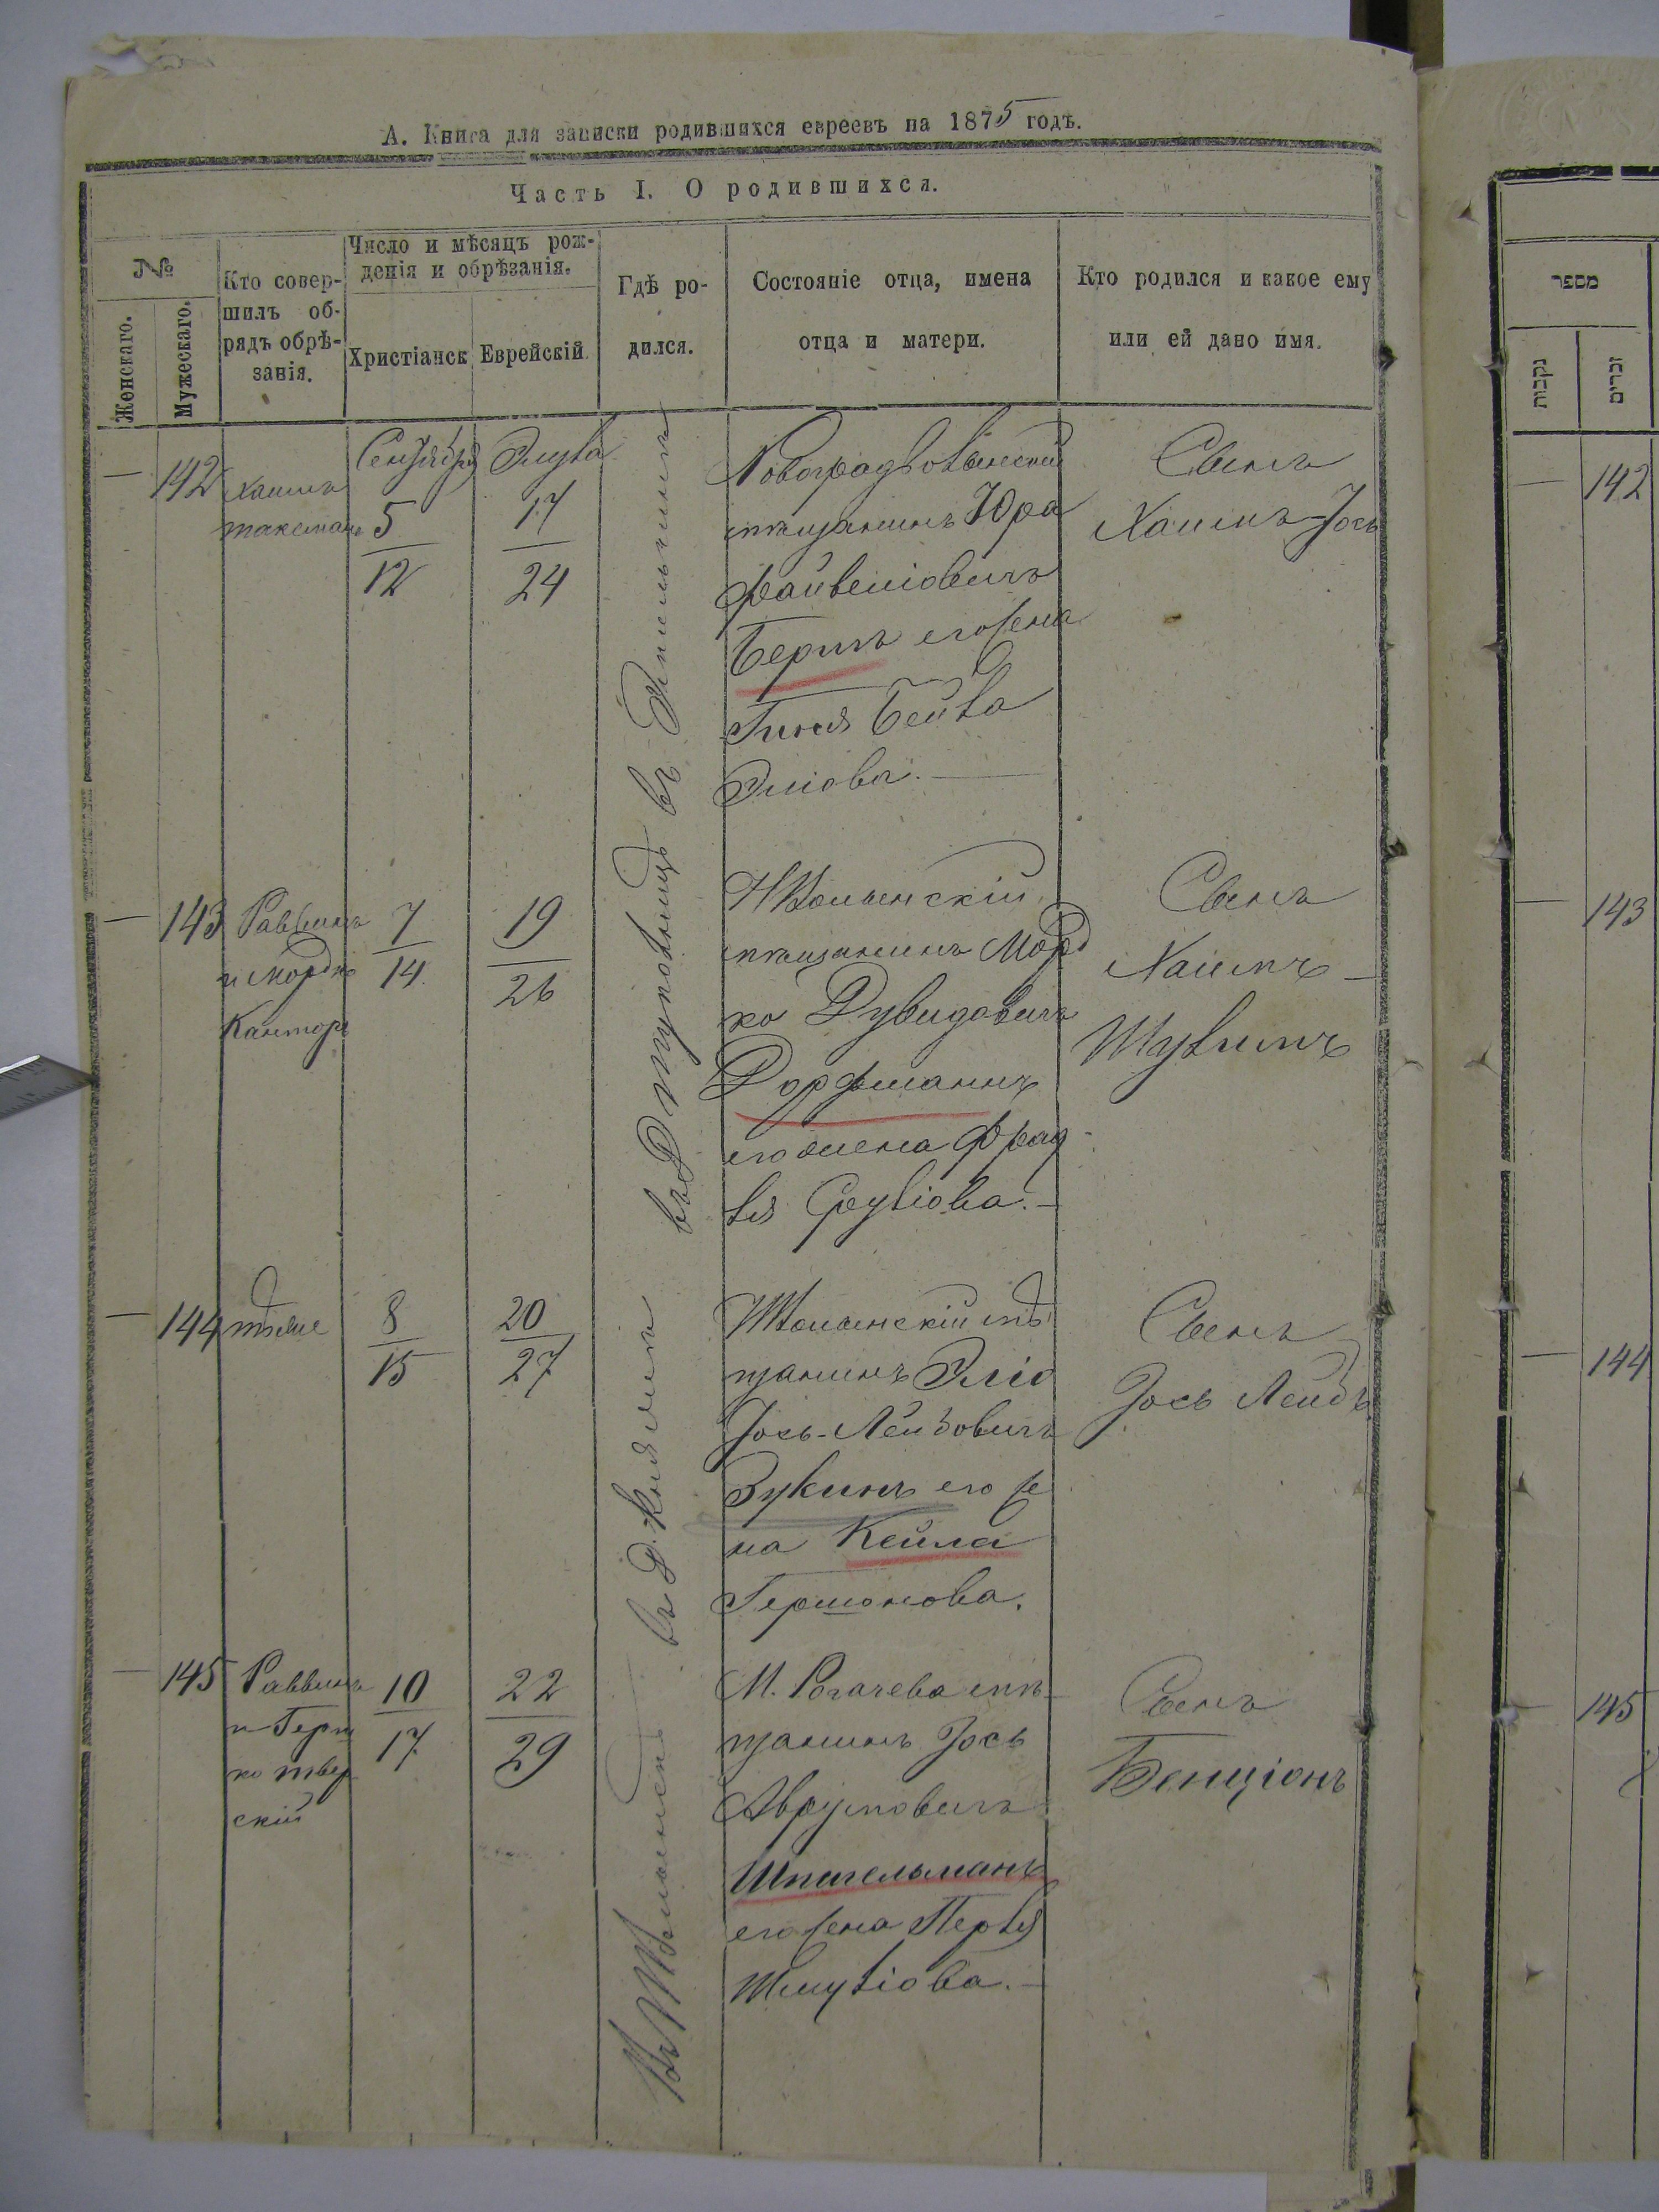 А. Книга для записки родившихся евреевъ на 1875 годъ.
Часть I. О родившихся.
№
Женскаго.
Мужескаго.
Кто совер-
шилъ об-
рядъ обрѣ-
занія.
Число и мѣсяцъ рож-
денія и обрѣзанія.
Христіанск
Еврейскій.
Гдѣ ро-
дился.
Состояніе отца, имена
отца и матери.
Кто родился и какое ему
или ей дано имя.
—
142
Хаимъ
Таксманъ
Сентября
5
12
Элула
17
24
Новоградволынскій
мѣщанинъ Юра
Файвелiовичъ
его жена
Гиня Бейла
Элiова.—
Сынъ
Хаимъ-Іось
—
143
Раввинъ
и Мордко
Канторъ
7
14.
19
26
НВолынскій
мѣщанинъ Морд
ко Дувидовичъ
Дорфманъ
его жена Фрад-
ля Сруліова.—
Сынъ
Хаимъ-
Шулимъ
—
144
тѣже
8
15
20
27
НВолынскій мѣ
щанинъ Эліо
Іось-Лейбовичъ
его же
на Кейла
Гершонова.
Сынъ
Іось Лейбъ
—
145
Раввинъ
и Герш
ко Твер
скій
10
17.
22
29
М. Рогачева мѣ-
щанинъ Іось
Аврумовичъ
Шпигельманъ
его жена Перля
Шмуліова.—
Сынъ
Бенціонъ
מספר
נקבות
זכרים
—
142
—
143
—
144
145